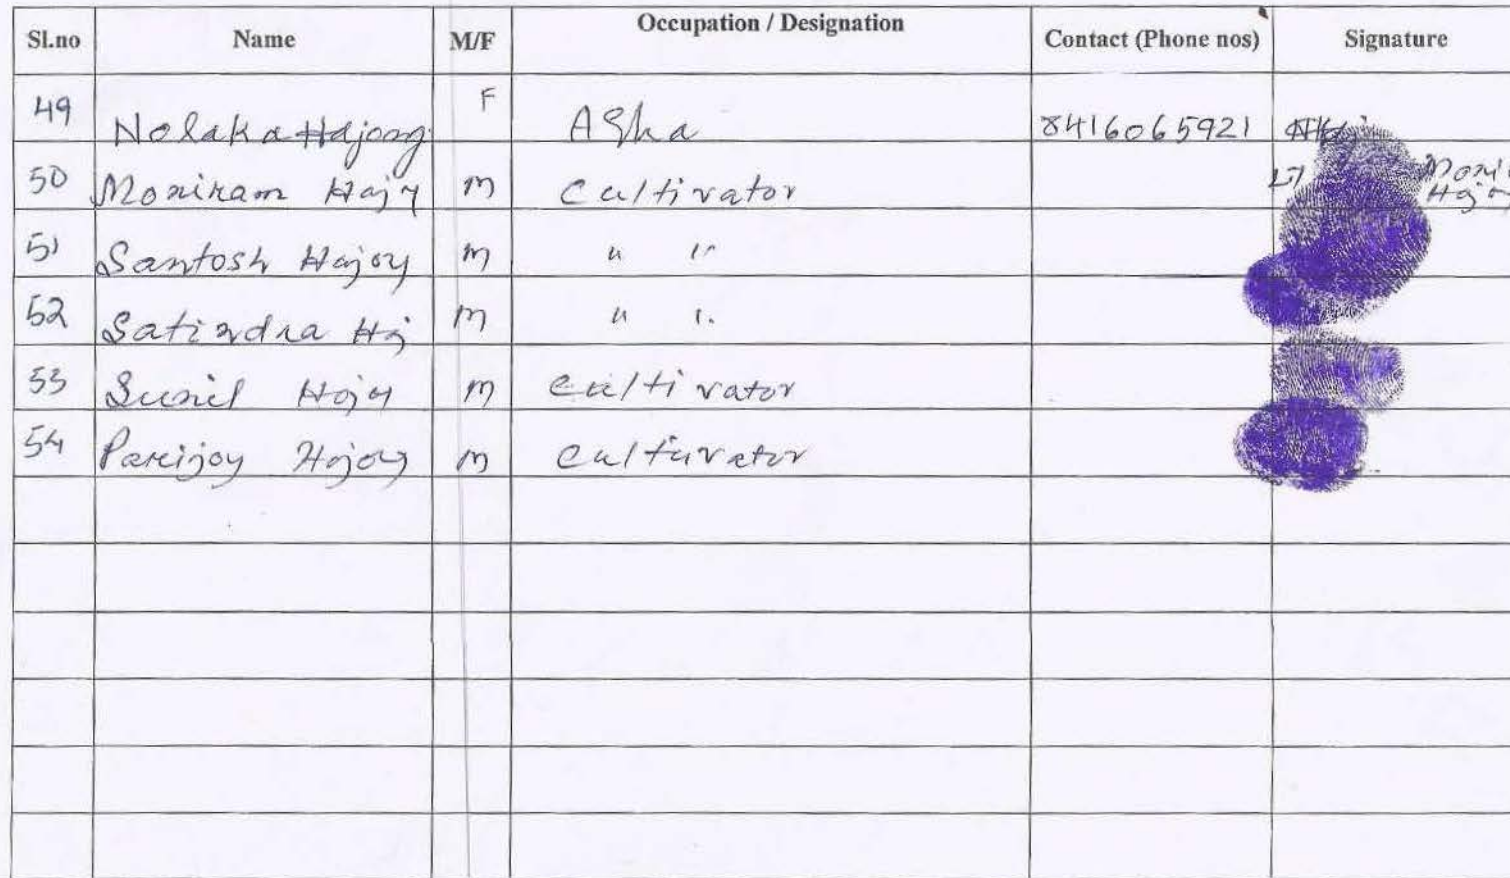 Sl.no Name M/F Occupation / Designation Contact (Phone nos) Signature
49 Nolaka Hajong F ASha 8416065921
50 Moniram Hajy m Cultivator
51 Santosh Hajoy m " "
52 Satindra Hj m " "
53 Sunil Hajoy m Cultivator
54 Parijoy Hojoy m Culturator